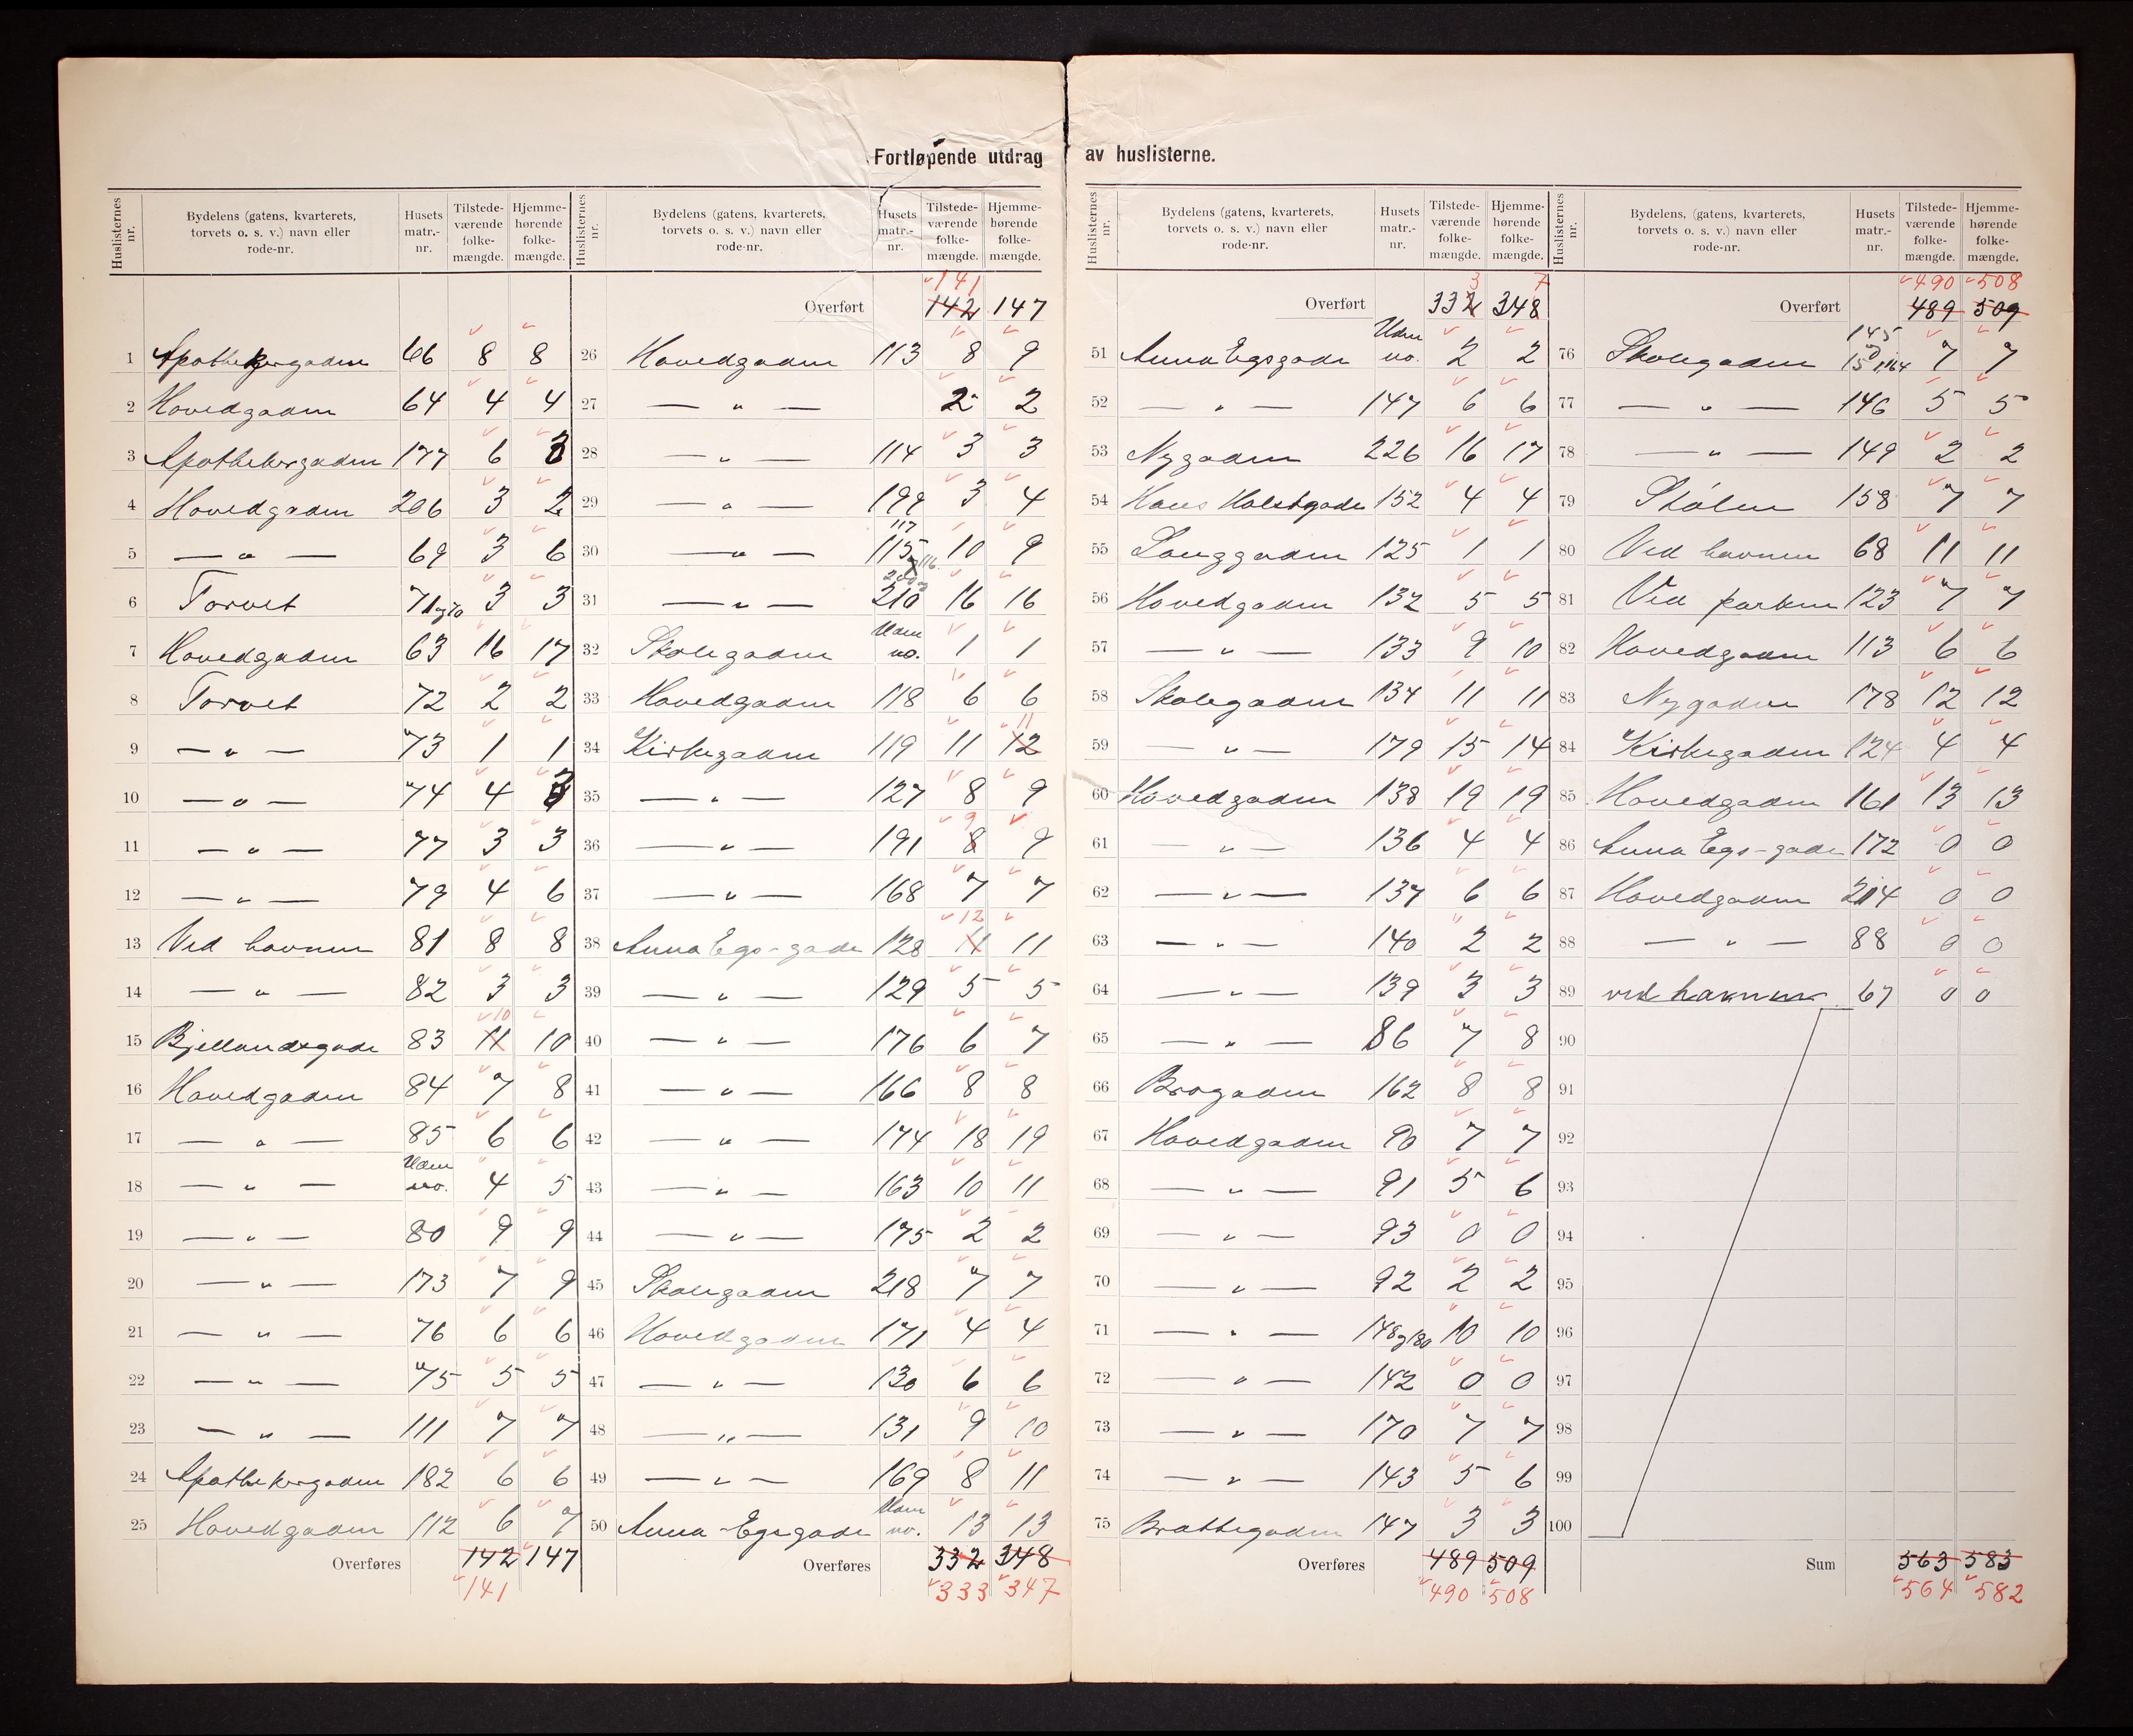 Fortløpende utdrag av huslisterne.
Huslisternes nr. Bydelens (gatens, kvarterets, torvets o. s. v.) navn eller rode-nr. Husets matr.-nr. Tilstede-værende folke-mængde. Hjemme-hørende folke-mængde.
1 Apothekergaden 66 8 8
2 Hovedgaden 64 4 4
3 Apothekergaden 177 6 3
4 Hovedgaden 206 3 2
5 — " — 69 3 6
6 Torvet 71 og 70 3 3
7 Hovedgaden 63 16 17
8 Torvet 72 2 2
9 — " — 73 1 1
10 — " — 74 4 3
11 — " — 77 3 3
12 — " — 79 4 6
13 Ved havnen 81 8 8
14 — " — 82 3 3
15 Bjellandsgade 83 11 10 10
16 Hovedgaden 84 7 8
17 — " — 85 6 6
18 — " — Uden no. 4 5
19 — " — 80 9 9
20 — " — 173 7 9
21 — " — 76 6 6
22 — " — 75 5 5
23 — " — 111 7 7
24 Apothekergaden 182 6 6
25 Hovedgaden 112 6 7
Overføres 142 147
141
Huslisternes nr. Bydelens (gatens, kvarterets, torvets o. s. v.) navn eller rode-nr. Husets matr.-nr. Tilstede-værende folke-mængde. Hjemme-hørende folke-mængde.
141
Overført 142 147
26 Hovedgaden 113 8 9
27 — " — 2 2
28 — " — 114 3 3
29 — " — 199 3 4
30 — " — 117 115 og 116 10 9
31 — " — 210 16 16
32 Skolegaden Uden no. 1 1
33 Hovedgaden 118 6 6
34 Kirkegaden 119 11 12 11
35 — " — 127 8 9
36 — " — 191 8 9 9
37 — " — 168 7 7
38 Anna Egs-gade 128 11 12 11
39 — " — 129 5 5
40 — " — 176 6 7
41 — " — 166 8 8
42 — " — 174 18 19
43 — " — 163 10 11
44 — " — 175 2 2
45 Skolegaden 218 7 7
46 Hovedgaden 171 4 4
47 — " — 130 6 6
48 — " — 131 9 10
49 — " — 169 8 11
50 Anna-Egsgade Uden no. 13 13
Overføres 332 348
333 347
Huslisternes nr. Bydelens (gatens, kvarterets, torvets o. s. v.) navn eller rode-nr. Husets matr.-nr. Tilstede-værende folke-mængde. Hjemme-hørende folke-mængde.
3 7
Overført 332 348
51 Anna Egsgade Uden no. 2 2
52 — " — 147 6 6
53 Nygaden 226 16 17
54 Hans Holstgade 152 4 4
55 Langgaden 125 1 1
56 Hovedgaden 132 5 5
57 — " — 133 9 10
58 Skolegaden 134 11 11
59 — " — 179 15 14
60 Hovedgaden 138 19 19
61 — " — 136 4 4
62 — " — 137 6 6
63 — " — 140 2 2
64 — " — 139 3 3
65 — " — 86 7 8
66 Brogaden 162 8 8
67 Hovedgaden 90 7 7
68 — " — 91 5 6
69 — " — 93 0 0
70 — " — 92 2 2
71 — " — 148 og 180 10 10
72 — " — 142 0 0
73 — " — 170 7 7
74 — " — 143 5 6
75 Brattegaden 147 3 3
Overføres 489 509
490 508
Huslisternes nr. Bydelens, (gatens, kvarterets, torvets o. s. v.) navn eller rode-nr. Husets matr.-nr. Tilstede-værende folke-mængde. Hjemme-hørende folke-mængde.
490 508
Overført 489 509
76 Skolegaden 145 7 7
77 — " — 146 5 5
78 — " — 149 2 2
79 Skolen 158 7 7
80 Ved havnen 68 11 11
81 Ved parken 123 7 7
82 Hovedgaden 113 6 6
83 Nygaden 178 12 12
84 Kirkegaden 124 4 4
85 Hovedgaden 161 13 13
86 Anna Egs-gade 172 0 0
87 Hovedgaden 214 0 0
88 — " — 88 0 0
89 ved havnen 67 0 0
90
91
92
93
94
95
96
97
98
99
100
Sum 563 583
564 582